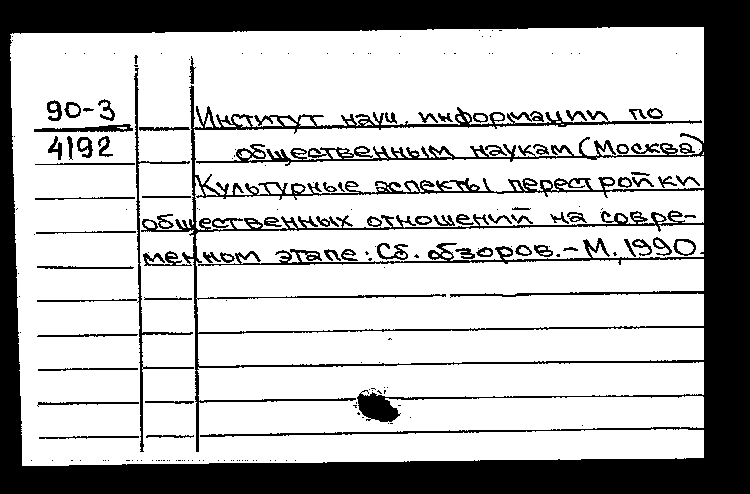 90-3
4192
Институт науч. информации по
общественным наукам (Москва)
Культурные аспекты перестройки
общественных отношений на совре-
менном этапе: Сб. обзоров. - М., 1990.